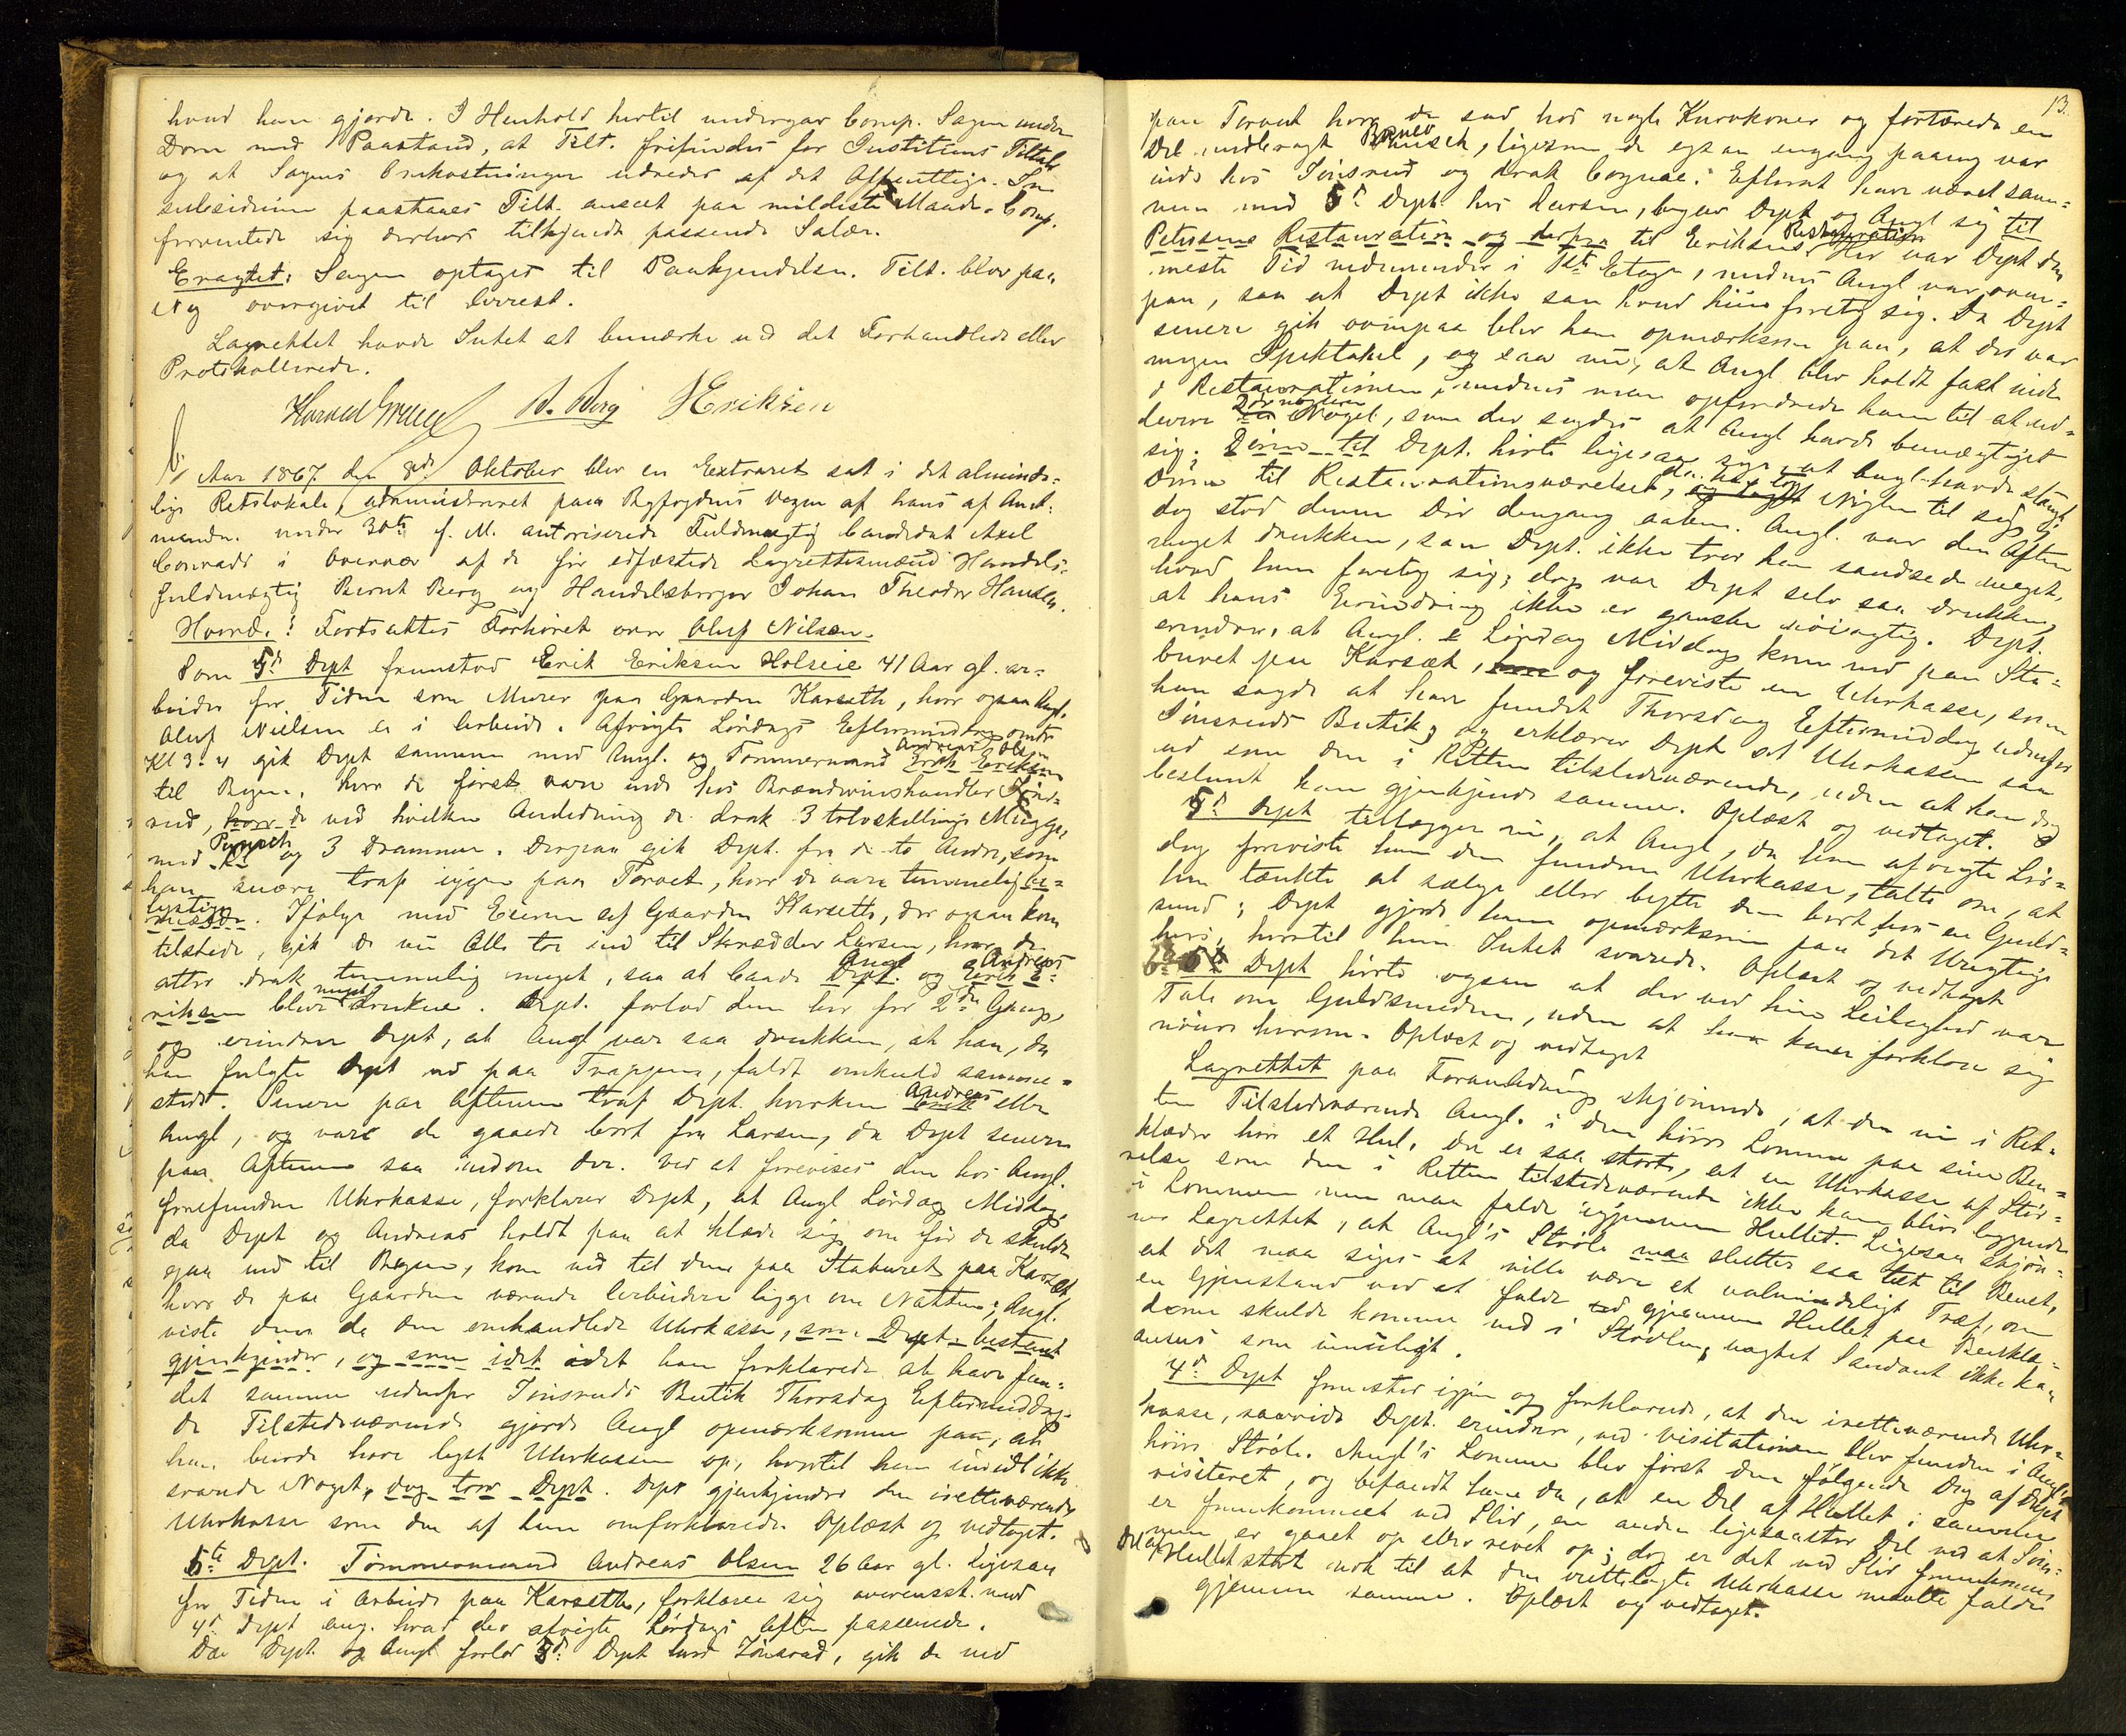 hvad han gjorde. I Henhold hertil undergav Comp. Sagen under
Dom med Paastand, at Tilt. frifindes for Justitiens Tiltale
og at Sagens Omkostninger udredes af det Offentlige. In
subsidium paastaaes Tilt. anseet paa mildeste Maade. Comp.
forventede sig derhos tilkjendt passende Salær.
Eragtet: Sagen optages til Paakjendelse. Tilt. blev paa
Ny overgivet til Arrest.
Lagrettet havde Intet at bemærke ved det Forhandlede eller
Protokollerede.
B. Berg JEriksen
Aar 1867 den 8de Oktober blev en Extraret sat i det alminde-
lige Retslokale, administreret paa Byfogdens Vegne af hans af Amt-
manden under 30te f. M. autoriserede Fuldmægtig Candidat Axel
Conradi i Overvær af de før edfæstede Lagrettesmænd Handels-
fuldmægtig Bernt Berg og Handelsborger Johan Theodor Hansen.
Hvorda: Fortsattes Forhøret over Oluf Nilsen.
Som 5d Dept fremstod Erik Eriksen Holseie 41 Aar gl. ar-
beider for Tiden som Murer paa Gaarden Karseth, hvor ogsaa Angl.
Oluf Nielsen er i Arbeide. Afvigte Lørdags Eftermiddag omtr
Kl 3-4 gik Dept sammen med Angl. og Tømmermand Andreas Olsen Erik Eriksen
til Byen, hvor de først vare inde hos Brændeviinshandler Jøns-
rud, hvor de ved hvilken Anledning de drak 3 tolvskillings Mugge,
med Punsch Øl og 3 Drammer. Derpaa gik Dept. fra de to Andre, som
han snart traf igjen paa Torvet, hvor de vare temmelig be-
rusede lystige. Ifølge med Eieren af Gaarden Karseth, der ogsaa kom
tilstede, gik de nu Alle tre ind til Skrædder Larsen, hvor de
atter drak temmelig meget, saa at baade Dept. Angl og Erik E- Andreas
riksen bleve meget drukne. Dept. forlod dem her for 2den Gang,
og erindrer Dept, at Angl var saa drukken, at han, da
han fulgte Dept ud paa Trappen, faldt omkuld samme-
steds. Senere paa Aftenen traf Dept. hverken Erik Andreas eller
Angl, og vare de gaaede bort fra Larsen, da Dept senere
paa Aftenen saa indom der. Ved at forevises den hos Angl.
forefundne Uhrkasse, forklarer Dept, at Angl Lørdag Middag,
da Dept og Andreas holdt paa at klæde sig om før de skulde
gaa ned til Byen, kom ind til dem paa Staburet paa Karseth
hvor de paa Gaarden værende Arbeidere ligge om Natten; Angl.
viste dem da den omhandlede Uhrkasse, som Dept. bestemt
gjenkjender, og som idet idet han forklarede at have fun-
det samme udenfor Jønsruds Butik Thorsdag Eftermiddag.
De Tilstedeværende gjorde Angl opmærksomme paa, at
han burde have lyst Uhrkassen op, hvortil han imidt ikke
svarede Noget, dog tror Dept. Dept gjenkjender den iretteværende
Uhrkasse som den af ham omforklarede. Oplæst og vedtaget.
6te Dept. Tømmermand Andreas Olsen 26 Aar gl. ligesaa
for Tiden i Arbeide paa Karseth, forklarer sig overensst. med
4d Dept ang. hvad der afvigte Lørdags Aften passerede.
Da Dept. og Angl forlod 5d Dept hos Jønsrud, gik de ned
13.
paa Torvet hvor de sad hos nogle Kurvkoner og fortærede en
Del medbragt Punsch, ligesom de ogsaa engang paany var
inde hos Jønsrud og drak Cognac. Efterat have været sam-
men med 5d Dept. hos Larsen, begav Dept og Angl sig til
Petersens Restauration og derfra til Eriksens Restauration. Her var Dept den
meste Tid nedenunder i 1ste Etage, medens Angl var oven-
paa, saa at Dept ikke saa hvad hiin foretog sig. Da Dept
senere gik ovenpaa blev han opmærksom paa, at der var
megen Spektakel, og saa nu, at Angl blev holdt fast inde
i Restaurationen, medens man opfordrede ham til at ud-
levere en Nøgel, som der sagdes at Angl havde bemægtiget
sig. Dørene til Dept. hørte ligesaa sige, at Angl havde stængt
Døren til Restaurationsværelset, og taget Nøglen til sig,
dog stod denne Dør dengang aaben. Angl. var den Aften
meget drukken, saa Dept. ikke tror han sandsede meget,
hvad han foretog sig; dog var Dept selv saa drukken,
at hans Erindring ikke er ganske nøiagtig. Dept.
erindrer, at Angl. Lørdag Middag kom ind paa Sta-
buret paa Karsæt, og foreviste en Uhrkasse, som
han sagde at have fundet Thorsdag Eftermiddag udenfor
Jønsruds Butik, og erklærer Dept at Uhrkassen saa
ud som den i Retten tilstedeværende, uden at han dog
bestemt kan gjenkjende samme. Oplæst og vedtaget.
5d Dept tillægger nu, at Angl, da han afvigte Lør-
dag foreviste ham den fundne Uhrkasse, talte om, at
han tænkte at sælge eller bytte den bort hos en Guld-
smed; Dept gjorde ham opmærksom paa det Urigtige
heri, hvortil hiin Intet svarede. Oplæst og vedtaget
6te Dept hørte ogsaa at der ved hiin Leilighed var
Tale om Guldsmeden, uden at han kan forklare sig
nøiere herom. Oplæst og vedtaget
Lagrettet paa Foranledning skjønnede, at den nu i Ret-
ten Tilstedeværende Angl. i den høire Lomme paa sine Ben-
klæder har et Hul, der er saa stort, at en Uhrkasse af Stør-
relse som den i Retten tilstedeværende ikke kan blive liggende
i Lommen men maa falde igjennem Hullet. Ligesaa skjøn-
nes Lagrettet, at Angl's Støvle maa sluttes saa tæt til Benet,
at det maa siges at ville være et ualmindeligt Træf, om
en Gjenstand ved at falde ned gjennem Hullet paa Benklæ-
derne skulde komme ned i Støvlen, uagtet Saadant ikke kan
ansees som umuligt.
4d Dept fremsted igjen og forklarede, at den iretteværende Uhr-
kasse, saavidt Dept. erindrer, ved Visitationen blev funden i Angl's
høire Støvle. Angl's Lomme blev først den følgende Dag af Dept
visiteret, og befandt han da, at en Del af Hullet i samme
er fremkommet ved Slid, en anden ligesaastor Del ved at Søm-
men er gaaet op eller revet op; dog er det ved Slid fremkomne
Del af Hullet stort nok til at den irettelagte Uhrkasse maatte falde
gjennem samme. Oplæst og vedtaget.